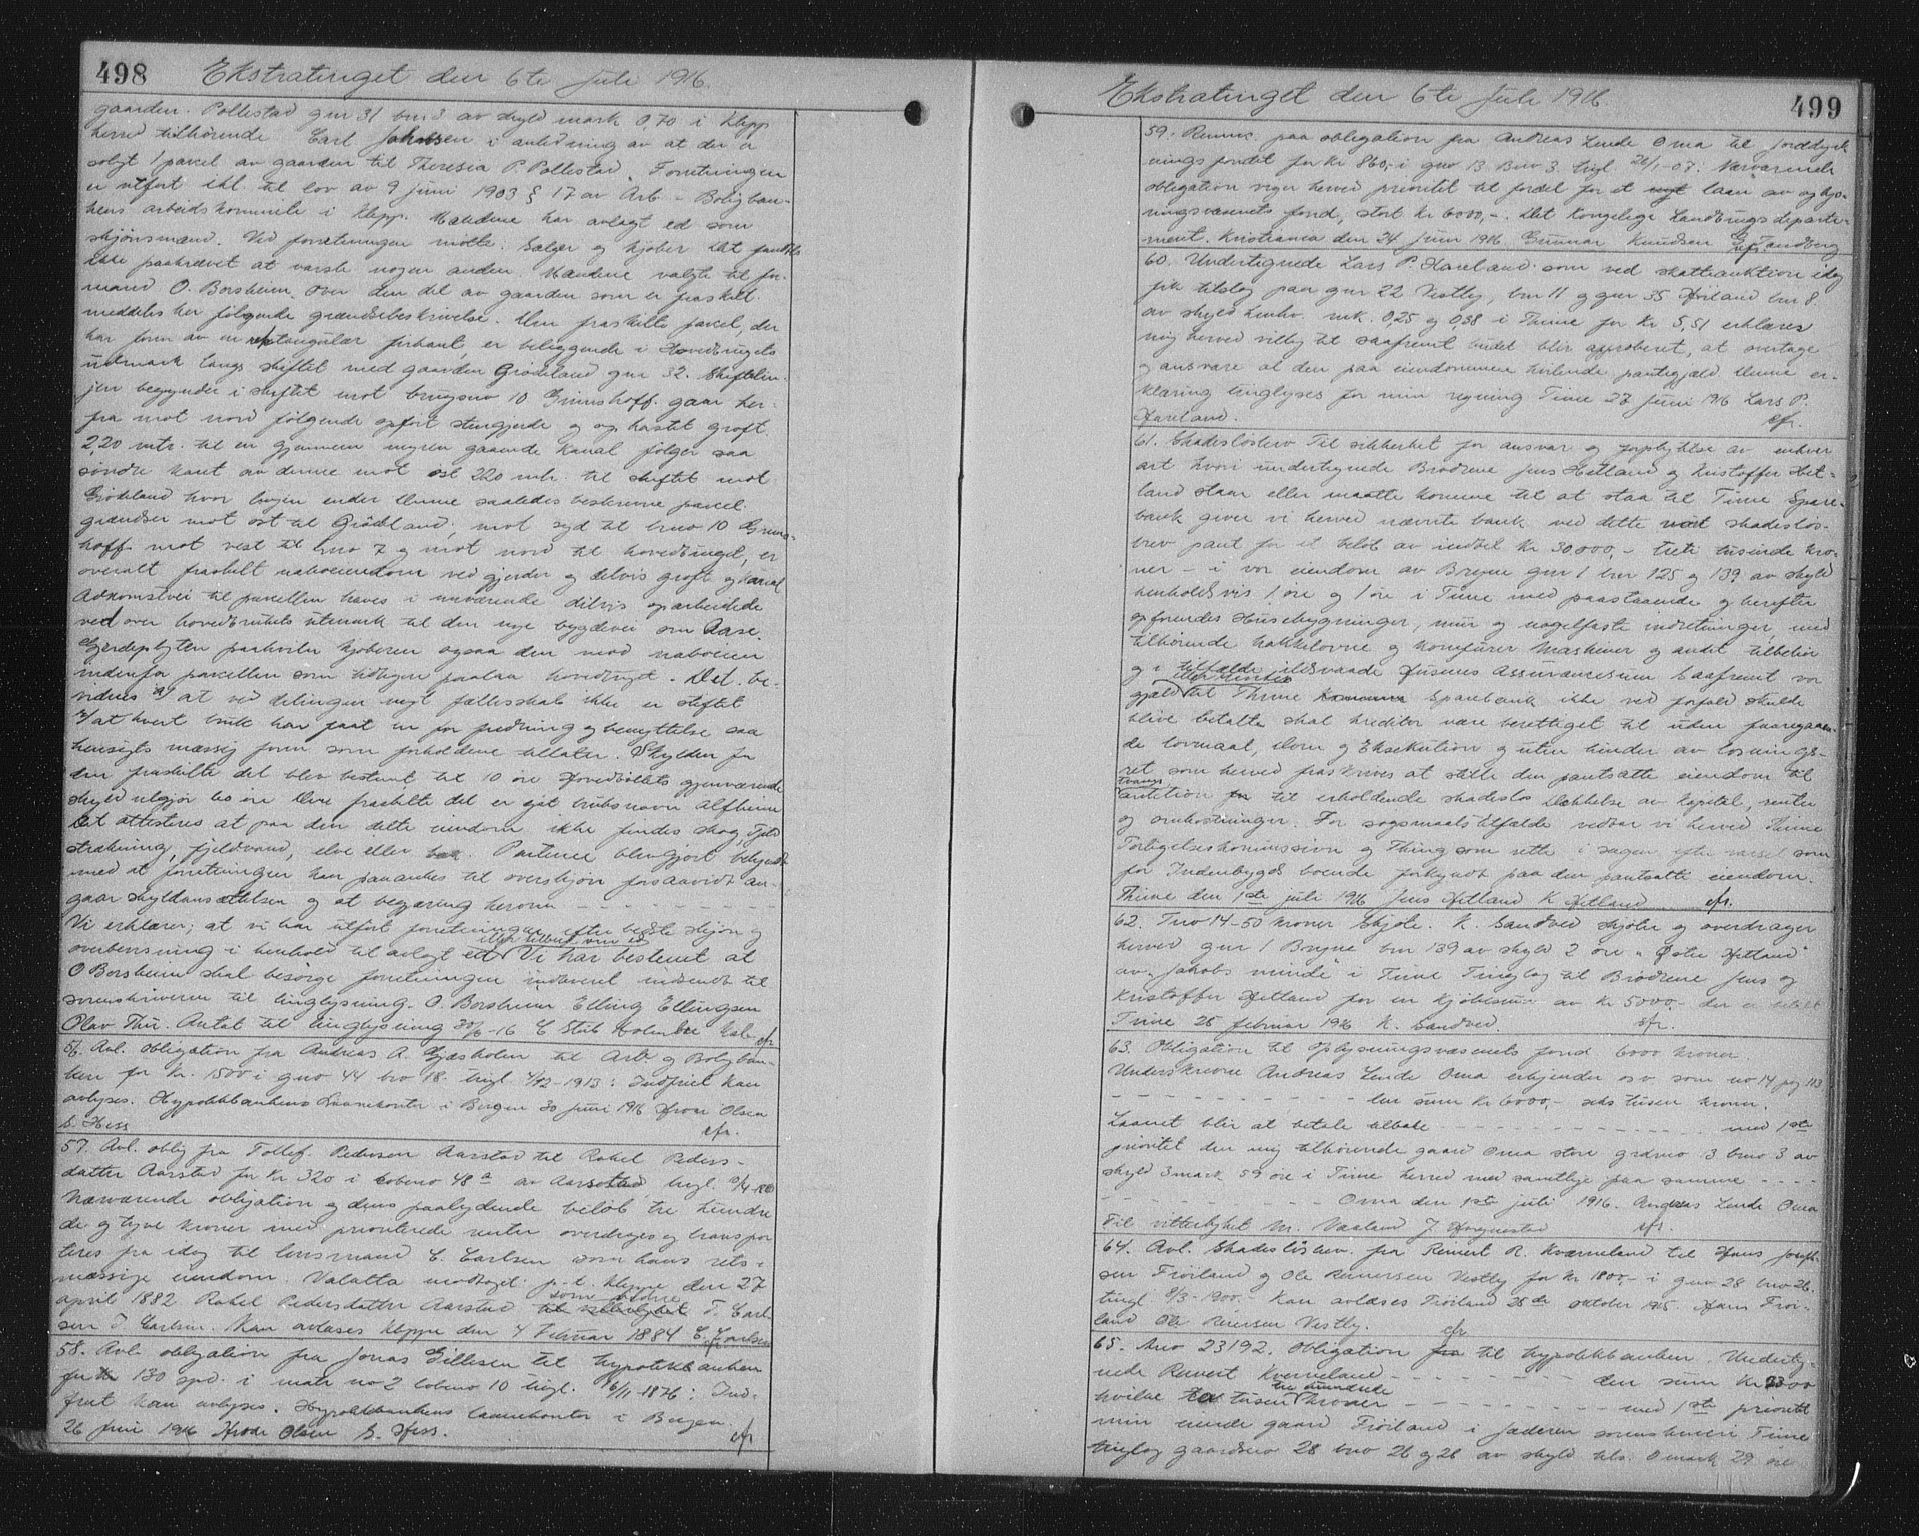 498 Ekstratinget den 6te Juli 1916.
gaarden Pollestad gnr 31 bnr 3 av skyld mark 0,70 i Klepp
herred tilhörende Carl Johnsen i anledning av at der er
solgt 1 parcel av gaarden til Theresia P. Pollestad. Forretningen
er utfört ihl. til lov av 9 juni 1903 § 17 av Arb.- Boligban-
kens arbeidskommite i Klepp. Mændene har avlagt ed som
skjönsmænd. Ved forretningen mötte: Sælger og kjöber Det fandtes
ikke paakrævet at varsle nogen anden. Mændene valgte til for-
mand O. Borsheim. Over den del av gaarden som er fraskilt
meddeles her fölgende grændsebeskrivelse. Den fraskilte parcel, der
har form av en rektangulær firkant, er beliggende i Hovedbrugets
utmark langs skiftet med gaarden Grödeland gnr 32. Skiftelin-
jen begynder i skiftet mot brugsno 10 Grimshoff. gaar her-
fra mot nord fölgende opfört stengjerde og op kastet gröft
2,20 mtr. til en gjennem myren gaaende kanal fölger saa
söndre kant av denne mot öst 220 mtr. til skiftet mot
Grödeland hvor linjen ender Denne saaledes beskrevne parcel
grændser mot öst til Grödland, mot syd til bno 10 Grims-
hoff mot vest til bno 7 og mot nord til hovedbruget, er
overalt fraskilt naboeiendom ved gjerder og delvis gröft og kanal
Adkomstvei til parcellen haves i nuværende delvis oparbeidede
vei over hovedbrukets utmark til den nye bygdevei om Aase.
Gjerdepligten paahviler kjöberen ogsaa den mod naboeien
indenfor parcellen som tidligere paalaa hovedbruget. Det be-
vidnes a/ at ved delingen nogt fællesskab ikke er stiftet
b/ at hvert bruk har faat en for fredning og benyttelse saa
hensigtsmæssig form som forholdene tillater. Skylden for
den fraskilte del blev bestemt til 10 öre Hovedbölets gjenværende
skyld utgjör 60 öre Den fraskilte del er git bruksnavn Alfheim
Det attesteres at paa den delte eiendom ikke findes skog, fjeld
strækning, fjeldvand, elve eller bæk. Parterne blev gjort bekjendt
med at forretningen kan paaankes til overskjön forsaavidt an-
gaar skyldansættelsen og at begjæring herom - - - - - - - - -
Vi erklærer; at vi har utfört forretningen efter bedste skjön og
overbevisning i henhold til avlagt ed Vi har bestemt at
O Borsheim skal besörge forretningen indsendt til
sorenskriveren til tinglysning. O. Borsheim Elling Ellingsen
Olav Thu. Antat til tinglysning 30/6-16
56. Avl. obligation fra Andreas A. Gjæsholen til Arb. og Boligban-
ken for kr. 1500 i gno 44 bno 18. tingl. 4/12-1913: Indfriet kan
avlyses. Hypotekbankens Laanekontor i Bergen 30 Juni 1916 Hroar Olsen
S. Hess cfr.
57. Avl. oblig fra Tollef Pedersen Aarstad til Rakel Peders-
datter Aarstad for kr 320 i lobeno 48 a av Aarsstad tingl.
Nærværende obligation og dens paalydende belöb tre hundre
de og tyve kroner med prioriterede renter overdrages og transpor
teres fra idag til lensmand C. Carlsen som hans rets-
mæssige eiendom. Valutta modtaget p.t. Kleppe den 27
april 1882. Rakel Pedersdatter Aarstad til vitterlighet T. Carl-
sen T. Carlsen. Kan avlæses Kleppe den 4 Februar 1884 C. Carlsen
58. Avl. obligation fra Jonas Gillesen til hypotekbanken
for 130 spd. i matr no 2 lobeno 10 tingl. 16/11-1876: Ind-
friet kan avlyses. Hypotekbankens laanekontor i Bergen.
26 Juni 1916 Hroar Olsen S. Hess. cfr
Ekstratinget den 6te Juli 1916. 499
59. Renunc. paa obligation fra Andreas Lende Oma til Jorddyrk
ningsfondet for kr 860,- i gno 13 bno 3. tingl. 26/1-07: Nærværende
obligation viger herved prioritet til fordel for et nyt laan av oplys-
ningsvæsenets fond, stort kr 6000,-. Det kongelige Landbrugsdeparte-
ment. Kristiania den 24 Juni 1916 Gunnar Knudsen G. Tandberg
60. Undertegnede Lars P. Hareland som ved skatteauktion idag
fik tilslag paa gnr 22 Vestly, bnr 11 og gnr 35 Höiland bnr 8.
av skyld henhv. mk. 0,25 og 0,38 i Thime for kr 5,51 erklærer
mig herved villig til saafremt budet blir approberet, at overtage
og ansvare al den paa eiendommen heftende pantegjæld. Denne er-
klæring tinglyses for min regning Time 27 Juni 1916 Lars P.
Hareland. cfr.
61. Skadeslösbrev Til sikkerhet for ansvar og forpligtelse av enhver
art hvori undertegnede Brödrene Jens Hetland og Kristoffer Het-
land staar eller maatte komme til at staa til Time Spare-
bank giver vi herved nævnte bank ved dette vort skadeslös-
brev pant for et belöb av indtil kr 30000,- treti tusinde kro-
ner - i vor eiendom av Bryne gnr 1 bnr 125 og 139 av skyld
henholdsvis 1 öre og 1 öre i Time med paastaaende og herefter
opförendes Husebygninger, mur og nagelfaste indretninger, med
tilhörende kakkelovne og komfurer Maskiner og andet tilbehör
og i tilfælde ildsvaade Husenes Assurancesum Saafremt vor
gjæld eller renter til Thime Sparebank ikke ved forfald skulde
blive betalte skal kreditor være berettiget til uden foregaaen-
de lovmaal, dom og Eksekution og uten hinder av lösnings-
ret som herved fraskrives at stille den pantsatte eiendom til
tvangs auktion for til erholdende skadeslös dækkelse av kapital, renter
og omkostninger. For sögsmaalstilfælde vedtar vi herved Thime
Forligelseskommission og Thing som rette i sagen efter varsel som
for Indenbygds boende forkyndt paa den pantsatte eiendom.
Thime den 1ste juli 1916 Jens Hetland K Hetland cfr.
62. Tno 14-50 kroner Skjöte. K. Sandved skjöter og overdrager
herved gnr 1 Bryne bnr 139 av skyld 2 öre "Östre Hetland"
av "Jakobs minde" i Time Tinglag til Brödrene Jens og
Kristoffer Hetland for en kjöbesum av kr 5000,- der er betalt
Time 25 februar 1916 K. Sandved. cfr.
63. Obligation til Oplysningsvæsenets fond 6000 kroner
Underskrevne Andreas Lende Oma erkjender osv som no 14 pag 113
- - - - - - - - - - den sum kr 6000,- seks tusen kroner.
Laanet blir at betale tilbake - - - - - - - - - med 1ste
prioritet den mig tilhörende gaard Oma store grdno 3 bno 3 av
skyld 3 mark 59 öre i Time herred med samtlige paa samme - - - -
- - - - - - - - - - Oma den 1ste juli 1916. Andreas Lende Oma
Til vitterlighet M. Vaaland J. Hognestad cfr.
64. Avl. Skadeslösbrev. fra Reinert R. Kværneland til Hans Joseph-
sen Fröiland og Ole Reinersen Vestly for kr 1800,- i gno 28 bno 26.
tingl 9/3-1900.- Kan avlæses Fröiland 25de oktober 1915. Hans Fröi-
land Ole Reinersen Vestly. cfr
65. Ano 23192. Obligation fra til hypotekbanken. Underteg-
nede Reinert Kverneland - - - - - - - - den sum kr 2300
hvilke to tusen tre hundrede kroner - - - - - - - - med 1ste prioritet
min eiende gaard Fröiland i Jæderen sorenskriveri Time
tinglag gaardsno 28 bno 26 og 28 av skyld tils. 0 mark 29 öre